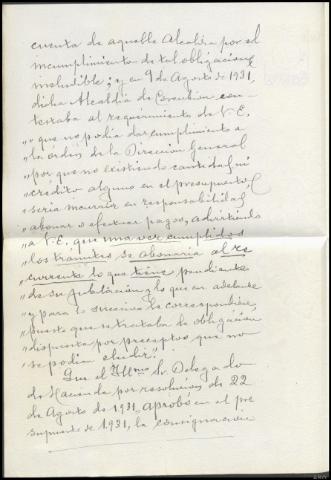 cuenta de aquella Alcaldia por el
incumplimiento de tal obligacion
ineludible; y en 9 de Agosto de 1931,
dicha Alcaldia de con-
testaba al requerimiento de V.E.
" que no podia dar cumplimiento a
" la orden de la Dirección General
" por que no existiendo cantidad ni
" credito alguno en el presupuesto,
" seria incurrir en responsabilidad
" abonar o efectuar pagos, advirtiendo
" a V.E. que una vez cumplidos
" los tramites se abonaria al re
" currente lo que tiene pendiente
" de su jubilación y lo que en adelante
" y para lo sucesivo le corresponde,
" puesto que se trataba de obligación
" dispuesta por preceptos que no
" se podian eludir".
Que el Iltmo. Sr. Delegado
de Hacienda por resolución de 22
de Agosto de 1931, aprobó en el pre
supuesto de 1931, la consignación